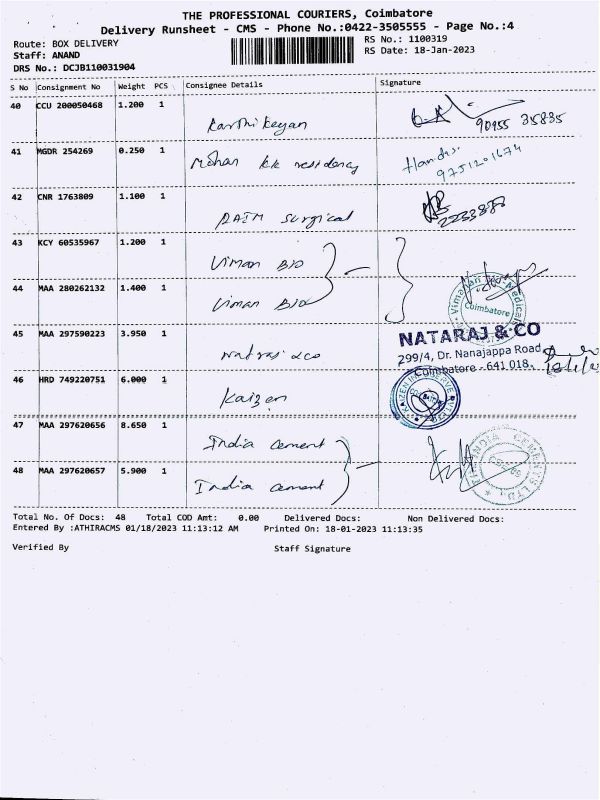 THE PROFESSIONAL COURIERS, Coimbatore
Delivery Runsheet - CMS - Phone No.:0422-3505555 - Page No.:4
Route: BOX DELIVERY
RS No.: 1100319
Staff: ANAND
RS Date: 18-Jan-2023
DRS No.: DCJB110031904
S No Consignment No Weight PCS Consignee Details Signature
40 CCU 200050468 1.200 1
Karthikeyan
90955 35835
41 MGDR 254269 0.250 1
Mohan KK residency
9751201674
42 CNR 1763809 1.100 1
surgical
43 KCY 60535967 1.200 1
Viman BIO
44 MAA 280262132 1.400 1
Viman BIO
Coimbatore
45 MAA 297590223 3.950 1
NATARAJ & CO
299/4, Dr. Nanajappa Road
Coimbatore - 641 018.
46 HRD 749220751 6.000 1
Kaizen
47 MAA 297620656 8.650 1
India cement
48 MAA 297620657 5.900 1
India cement
Total No. Of Docs: 48 Total COD Amt: 0.00 Delivered Docs: Non Delivered Docs:
Entered By :ATHIRACMS 01/18/2023 11:13:12 AM Printed On: 18-01-2023 11:13:35
Verified By Staff Signature